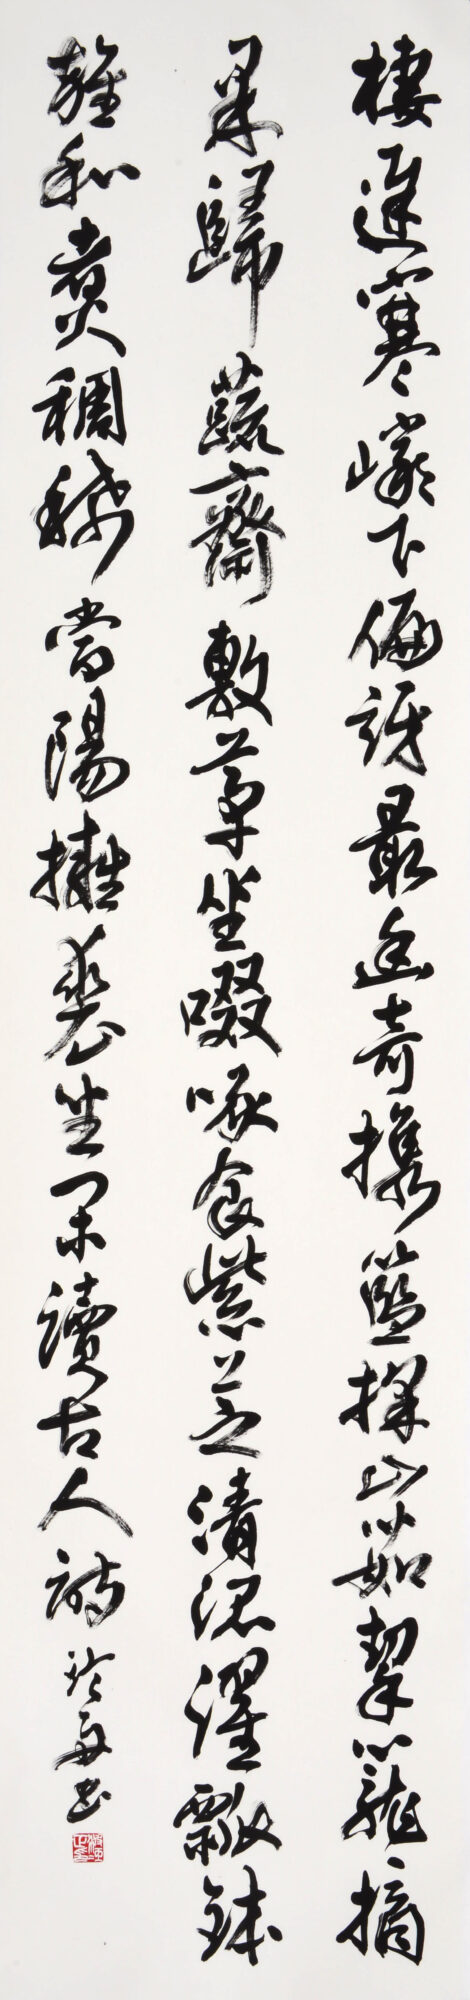 棲遲寒巖下偏訝最幽奇攜籃採山茹挈籠摘
果歸蔬齋敷茅坐啜啄食紫芝清沼濯瓢鉢
雜和煮稠稀當陽擁裘坐閑讀古人詩 書